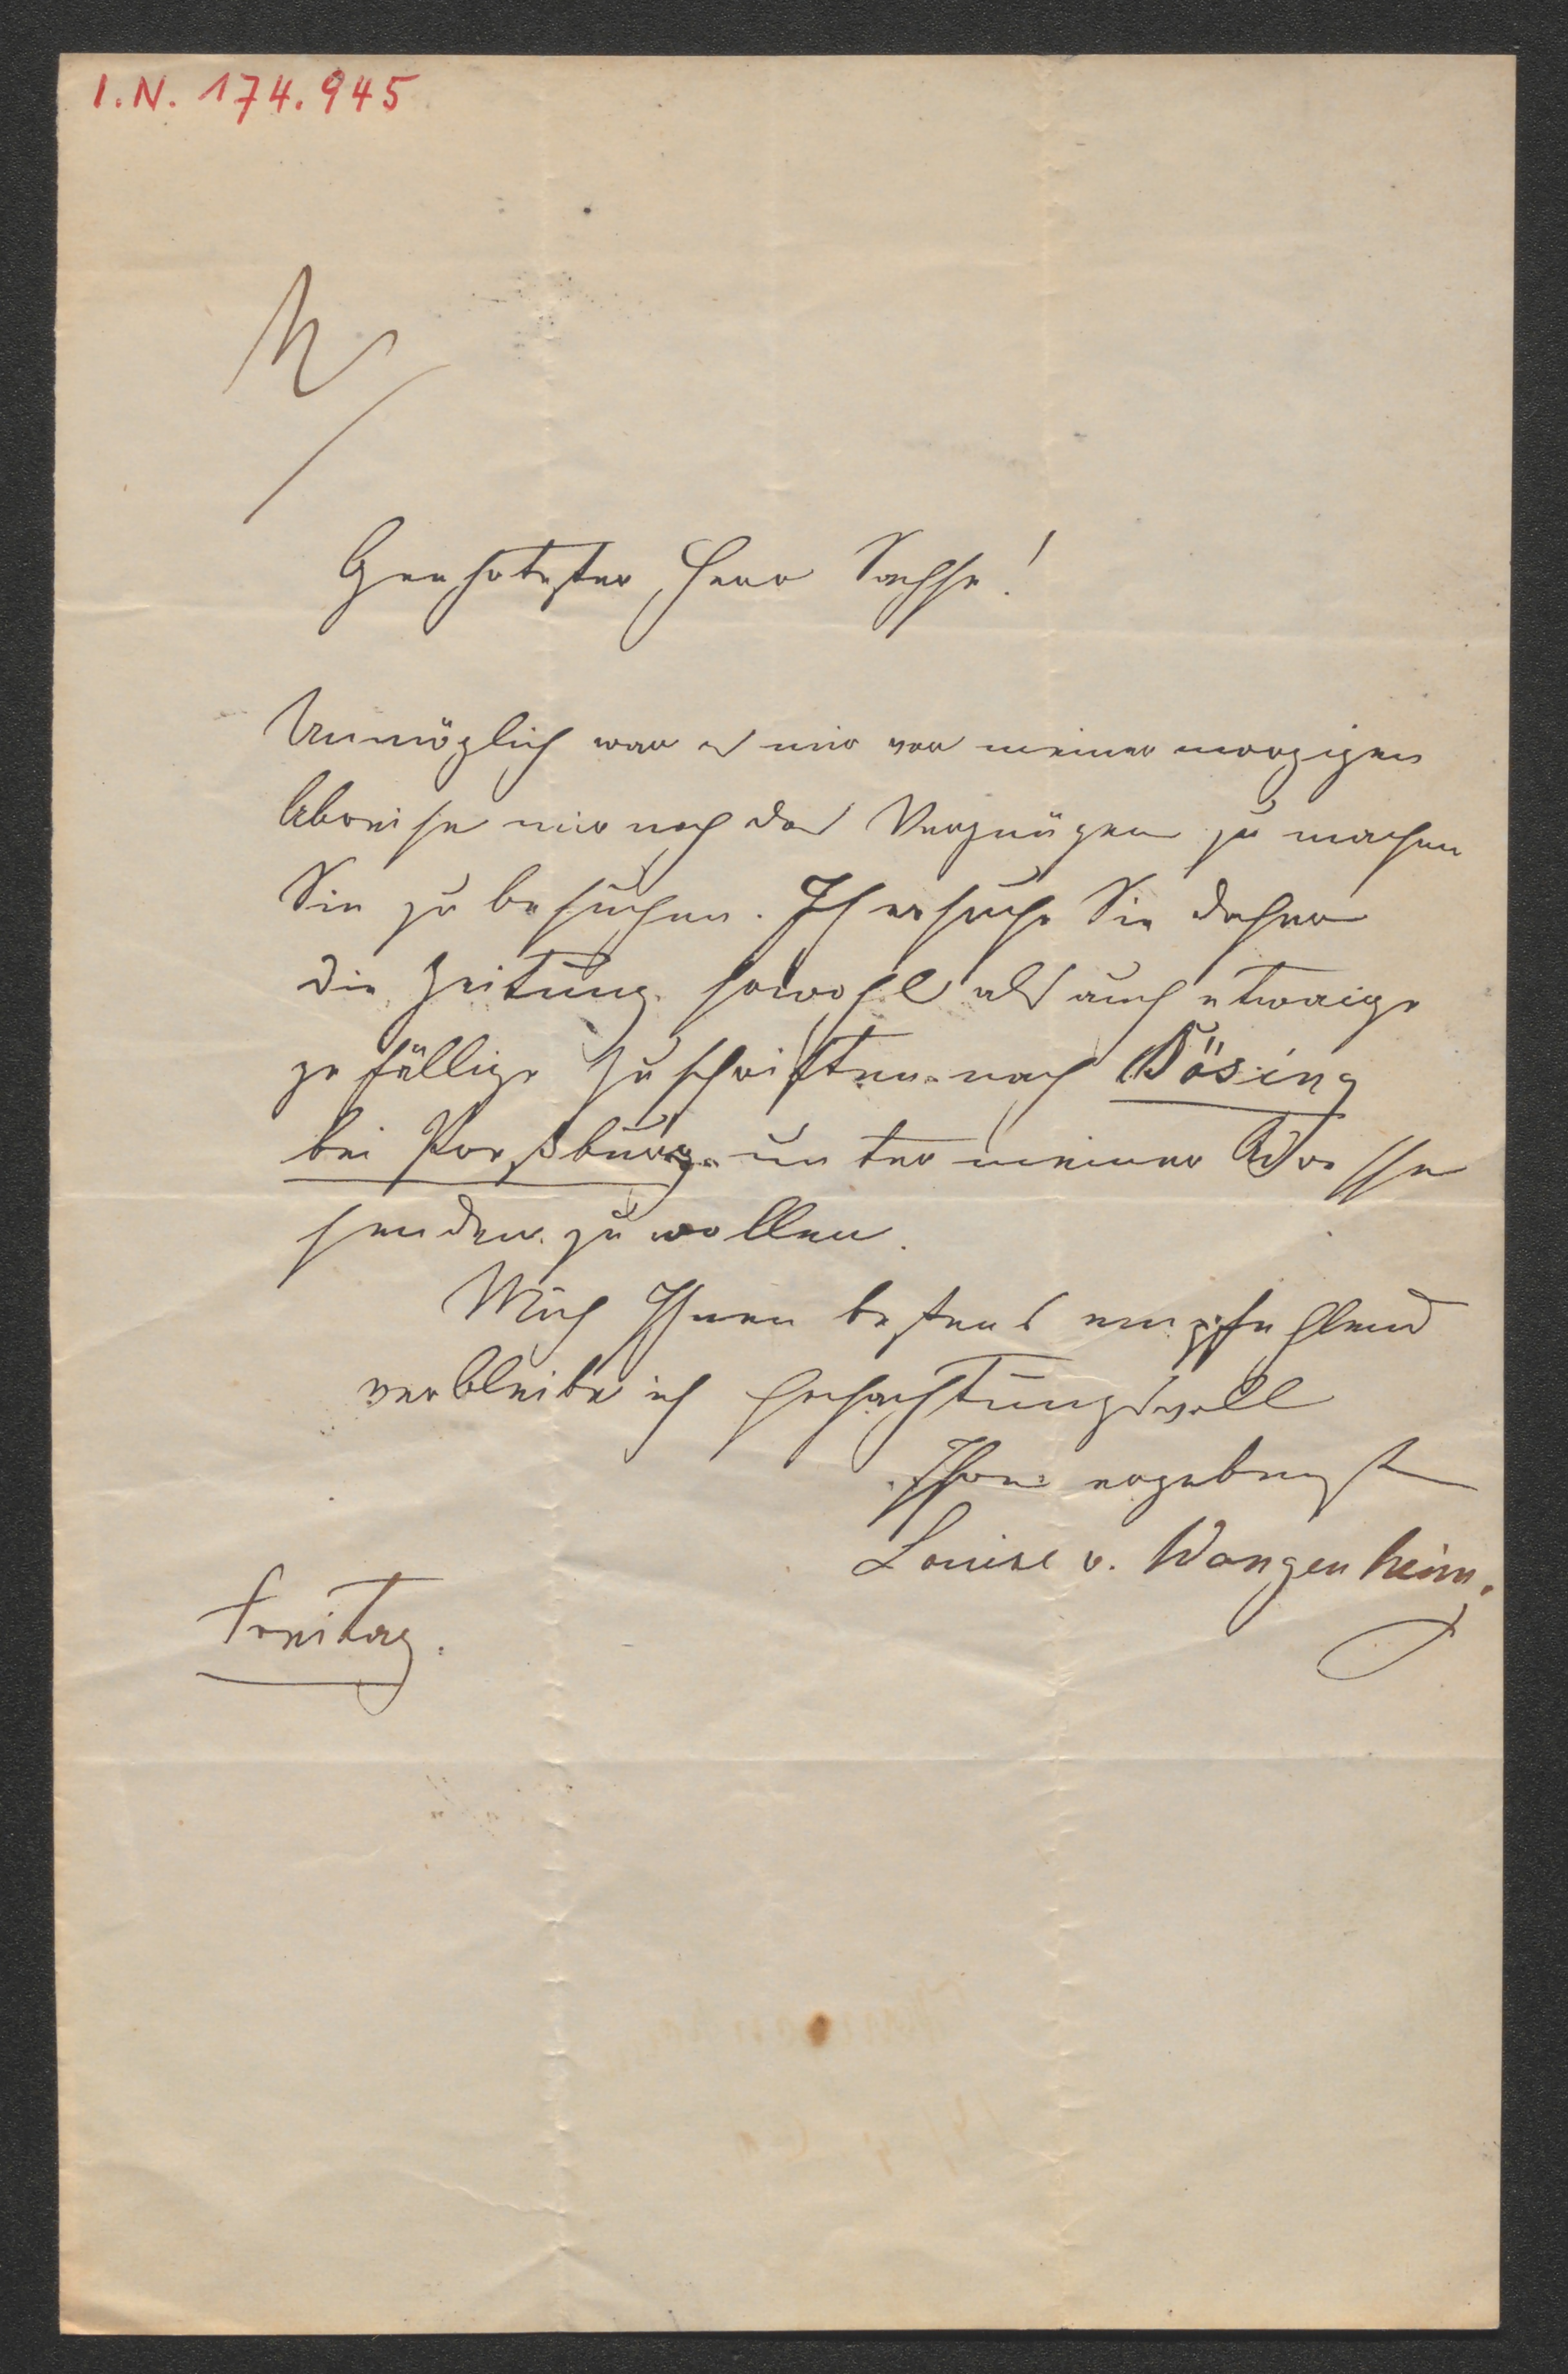 I.N. 174.945
Geehrtester Herr Sachse!
Unmöglich war es mir vor meiner morgigen
Abreise mir noch das Vergnügen zu machen
Sie zu besuchen. Ich ersuche Sie daher
die Zeitung sowohl als auch etwaige
gefällige Zuschriften nach Bösing
bei Preßburg unter meiner Adresse
senden zu wollen.
Mich Ihnen bestens empfehlend
verbleibe ich hochachtungsvoll
Ihre ergebenste
Louise v. Wangenheim.
Freitag.